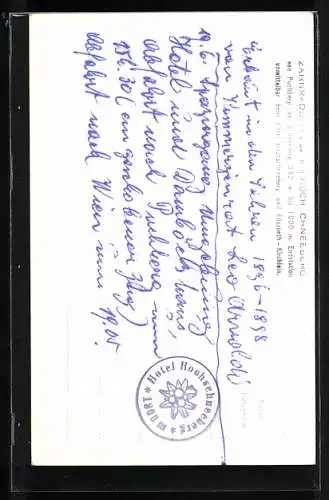 ZAHNRADBAHN AUF DEN HOCHSCHNEEBERG
von Puchberg am Schneeberg 582 m bis 1800 m, Endstation
unmittelbar beim Hotel Hochschneeberg und Elisabeth-Kirchlein.
Erbaut in den Jahren 1896-1898
von Kommerzialrat Leo Arnoldi
19.6. Spaziergang Umgebung
Hotel und Damböckhaus,
Abfahrt nach Puchberg um
15h 30 (ein geschobener Zug)
Abfahrt nach Wien um 19.05
* Hotel Hochschneeberg * 1800 m